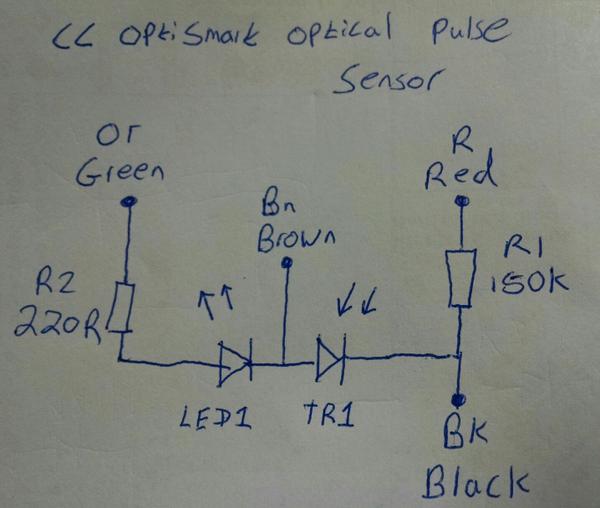 CC OptiSmart optical pulse
Sensor
Or
Green
Bn
Brown
R
Red
R2
220R
R1
150K
LED1
TR1
BK
Black